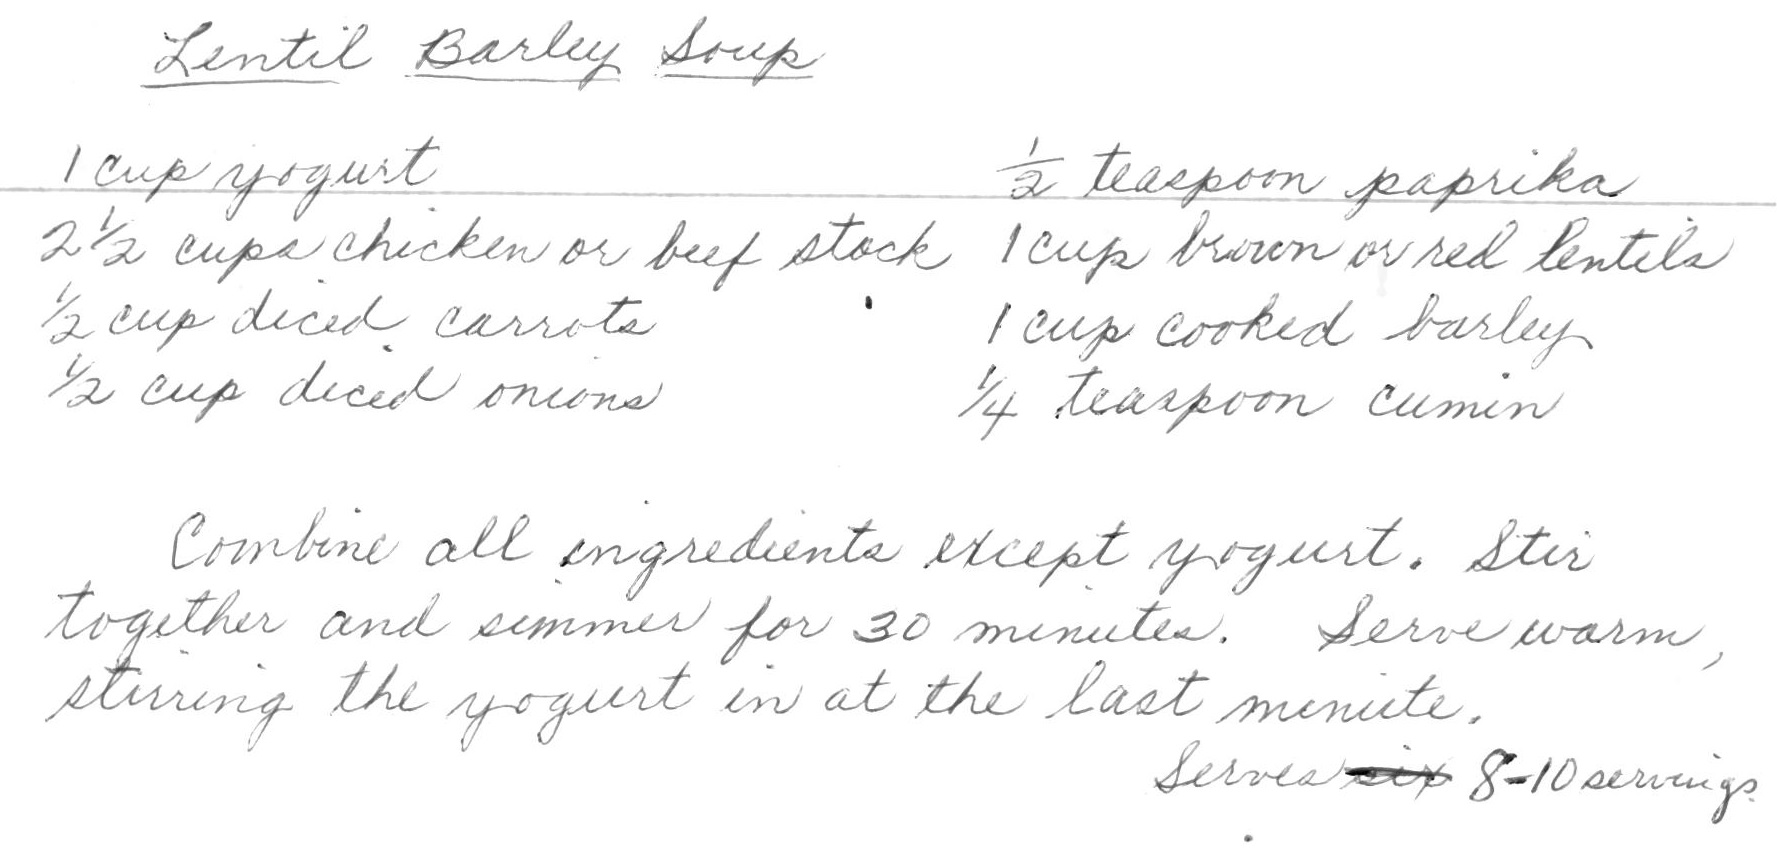 Lentil Barley Soup
1 cup yogurt
2 1/2 cups chicken or beef stock
1/2 cup diced carrots
1/2 cup diced onions
1/2 teaspoon paprika
1 cup brown or red lentils
1 cup cooked barley
1/4 teaspoon cumin
Combine all ingredients except yogurt. Stir
together and simmer for 30 minutes. Serve warm,
stirring the yogurt in at the last minute.
Serves six 8-10 servings